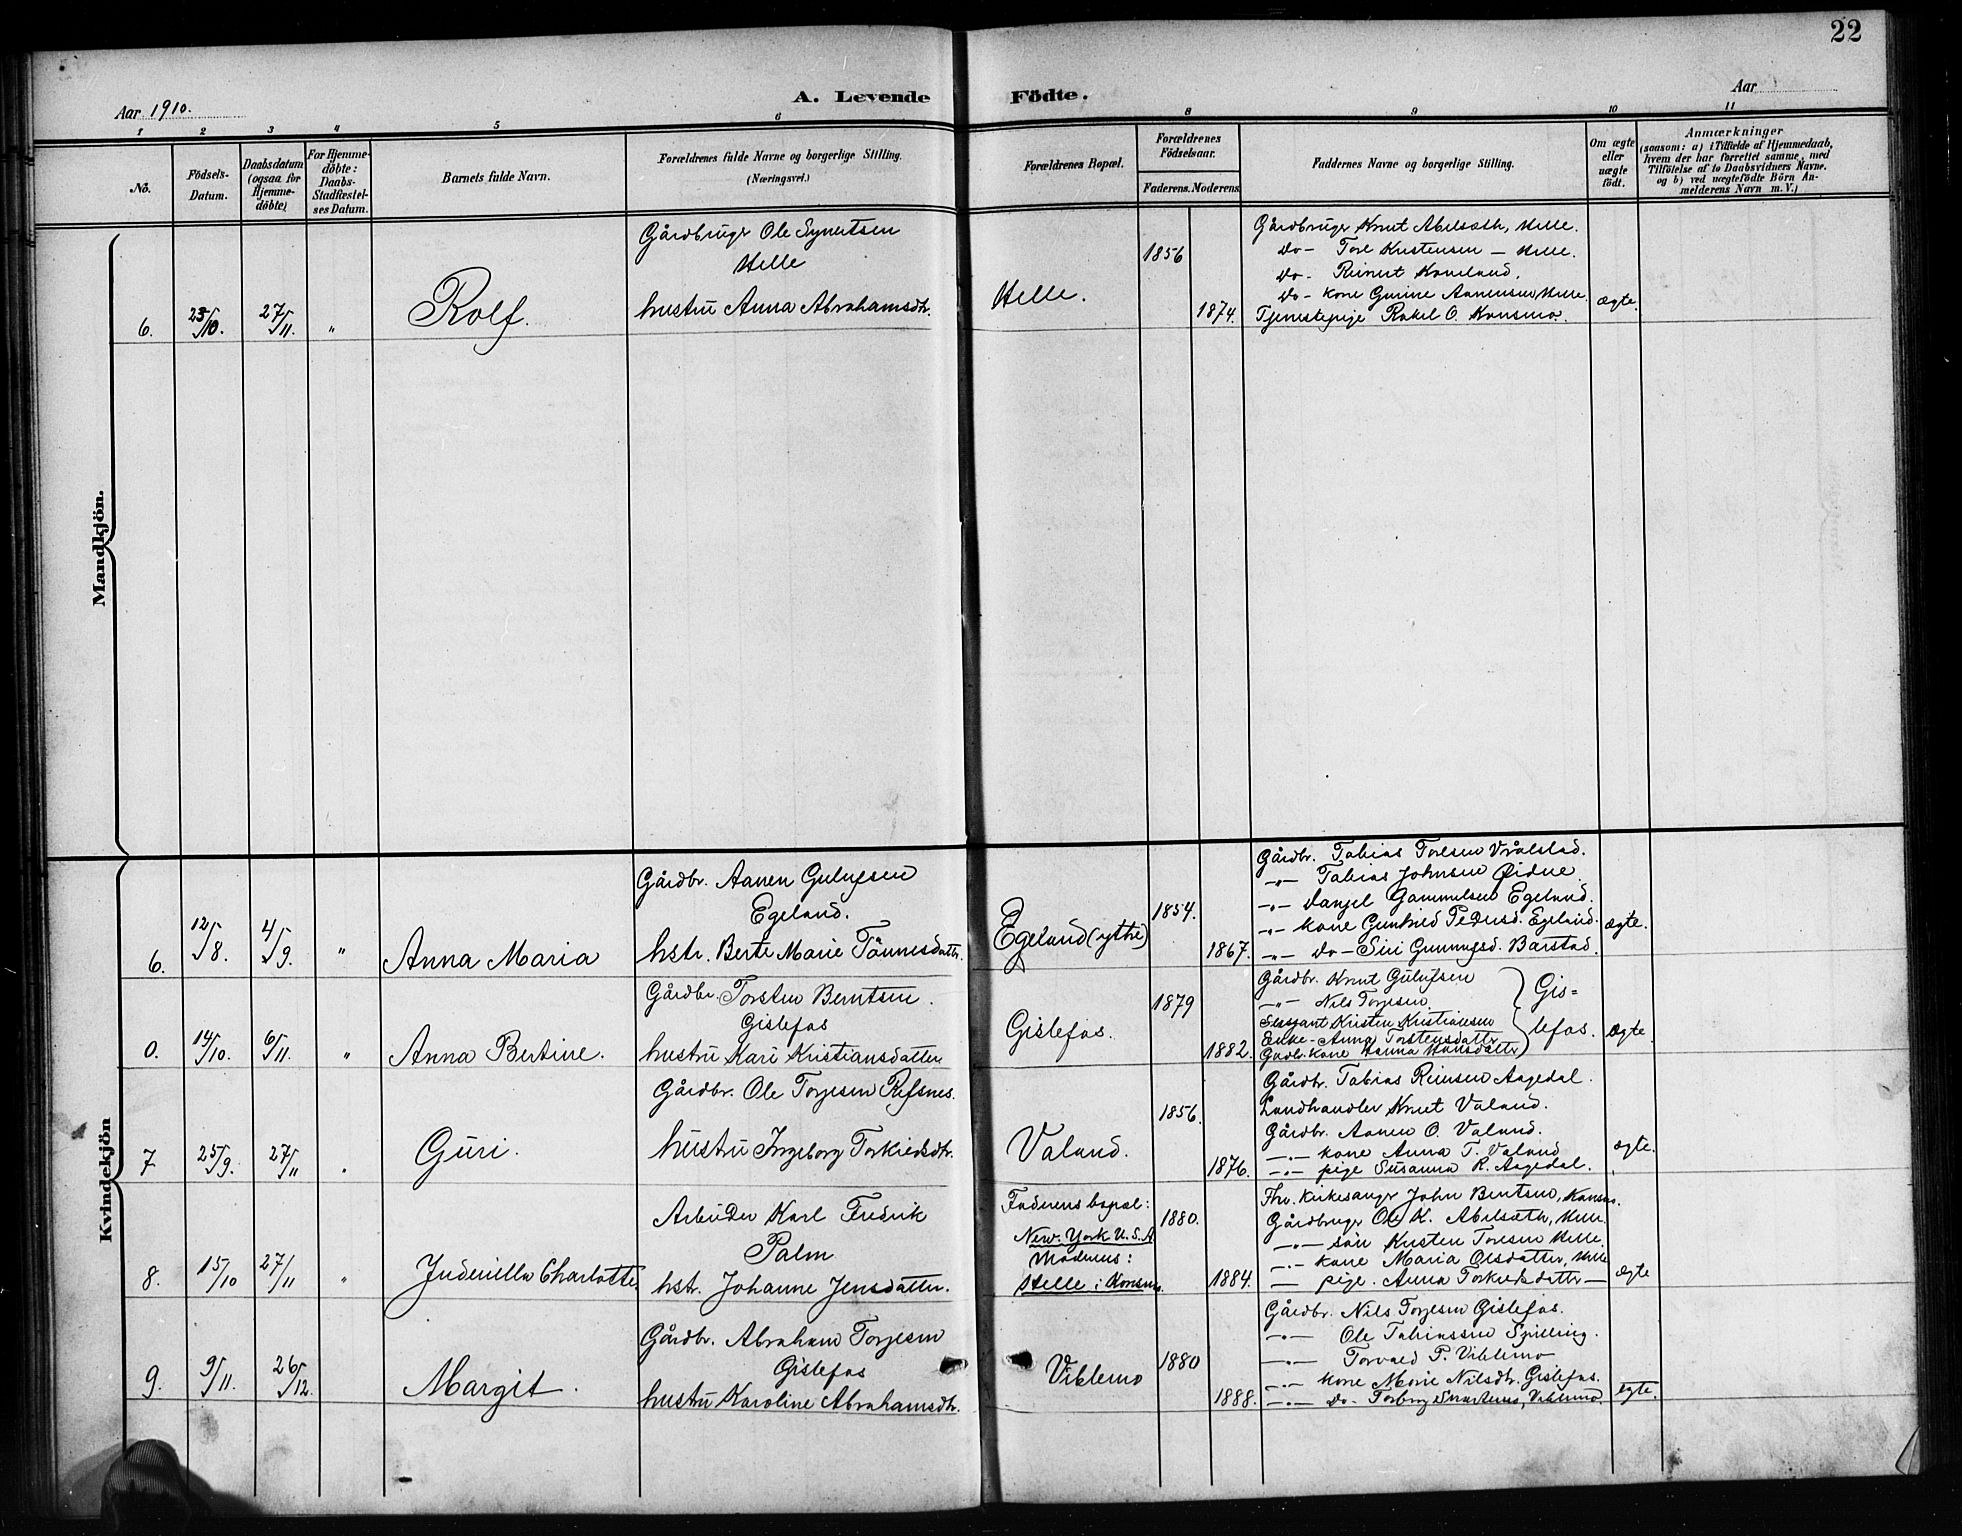 22
Aar 1910.
A. Levende Födte.
Aar
1 2 3 4 5 6 8 9 10 11
No.
Födsels-Datum.
Daabsdatum (ogsaa for Hjemme-döbte)
For Hjemme-döbte: Daabs-Stadfæstel-ses Datum.
Barnets fulde Navn.
Forældrenes fulde Navne og borgerlige Stilling. (Næringsvei.)
Forældrenes Bopæl.
Forældrenes Födselsaar.
Faderens. Moderens.
Faddernes Navne og borgerlige Stilling.
Om ægte eller uægte födt.
Anmærkninger
(saasom: a) i Tilfælde af Hjemmedaab, hvem der har forrettet samme, med Tilföielse af to Daabsvidners Navne. og b) ved uægtefödte Börn An-melderens Navn m. V.)
Mandkjön.
6. 23/10. 27/11. " Rolf.
Gårdbruger Ole Synertsen
Helle
hustru Anna Abrahamsdtr.
Helle.
1856
1874.
Gårdbruger Knut Abelsæth, Helle.
Do - Tore Kristensen - Helle.
Do - Reinert Konsland.
Do - kone Gurine Aanensen Helle.
Tjenestepige Rakel O. Konsmo.
ægte.
Kvindekjön
6. 12/8. 4/9. " Anna Maria
Gårdbr. Aanen Gulufsen
Egeland.
hstr. Berte Marie Tönnesdatter.
Egeland (ytre)
1854.
1867.
Gårdbr. Tobias Toresen Vrålstad.
-"- Tobias Johnsen Øidne.
-"- Danjel Gammelsen Egeland.
-"- kone Gunhild Pedersd. Egeland.
-"- Do - Siri Gunnufsd. Barstad.
ægte.
0. 14/10. 6/11. " Anna Bertine.
Gårdbr. Torsten Berntsen.
Gislefos
hustru Kari Kristiansdatter
Gislefos.
1879
1882.
Gårdbr. Knut Gulufsen
-"- Nils Torjesen
Sersjant Kristen Kristiansen
Enke - Anna Torstensdattr
Gårdbr. kone Hanna Hansdatter
Gis=
lefos.
ægte.
7 25/9. 27/11 " Guri.
Gårdbr. Ole Torjesen Refsnes.
hustru Ingeborg Torkieldsdtr.
Valand.
1856.
1876.
Gårdbr. Tobias Reiersen Aagedal.
Landhandler Knut Valand.
Gårdbr. Aanen O. Valand.
-"- kone Anna T. Valand
-"- pige Susanna R. Aagedal.
ægte.
8. 15/10 27/11 " Judenilla Charlotte
Arbeider Karl Fredrik
Palm
hst. Johanne Jensdatter.
Faderens bopæl:
New-York U.S.A
Moderens:
Helle i Konsmo.
1880.
1884.
Fhv. Kirkesanger John Bentsen, Konsmo.
Gårdbruger Ole K. Abelsæth, Helle.
-"- sön Kristen Toresen Helle.
-"- kone Maria Olsdatter, Helle
- pige. Anna Torkelsdatter -
ægte
9. 9/11. 26/12. Margit.
Gårdbr. Abraham Torjesen
Gislefos
hustru Karoline Abrahamsdtr.
Viblemo
1880
1888.
Gårdbr. Nils Torjesen Gislefos.
-"- Ole Tobiassen Spilling.
-"- Torvald P. Viblemo
-"- kone Marie Nilsdtr. Gislefos.
-"- Do - Torborg Viblemo.
ægte.